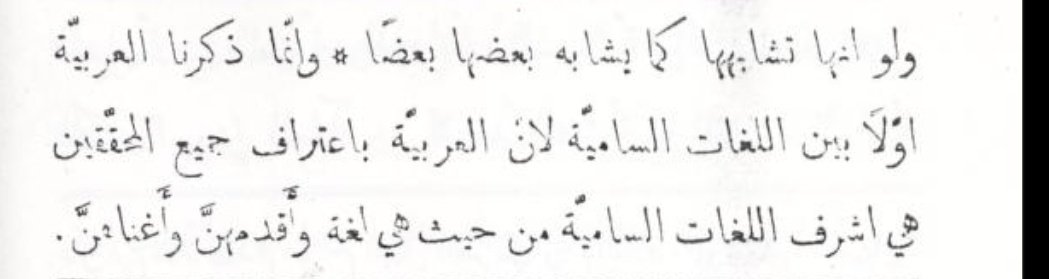 ولو انها تشابهها كما يشابه بعضها بعضًا * وانّما ذكرنا العربيّة
اوّلًا بين اللغات الساميّة لانّ العربيّة باعتراف جميع المحقّقين
هي اشرف اللغات الساميّة من حيث هي لغة وأَقدمهنَّ وأَغناهنَّ.